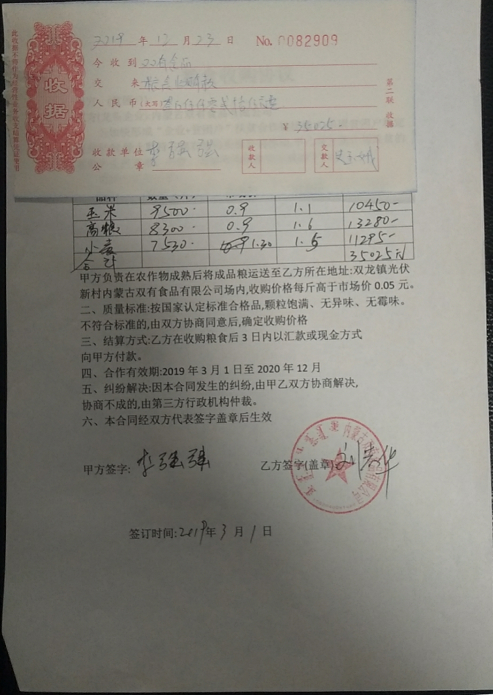 2019 年 12 月 23 日 No. 0082909
今收到
交 来
人民币 (大写)
¥ 35025-
收款单位
公 章
收款人
交款人
收据
第二联 收据
玉米 9500- 0.9 1.1 10450-
高粮 8300 0.9 1.6 13280-
小麦 7530 1.30 1.5 11295-
合计 35025元
甲方负责在农作物成熟后将成品粮运送至乙方所在地址:双龙镇光伏
新村内蒙古双有食品有限公司场内,收购价格每斤高于市场价 0.05 元。
二、质量标准:按国家认定标准合格品,颗粒饱满、无异味、无霉味。
不符合标准的,由双方协商同意后,确定收购价格
三、结算方式:乙方在收购粮食后 3 日内以汇款或现金方式
向甲方付款。
四、合作有效期:2019 年 3 月 1 日至 2020 年 12 月
五、纠纷解决:因本合同发生的纠纷,由甲乙双方协商解决,
协商不成的,由第三方行政机构仲裁。
六、本合同经双方代表签字盖章后生效
甲方签字: 李强强 乙方签字(盖章)
签订时间:2019年 3 月 1 日